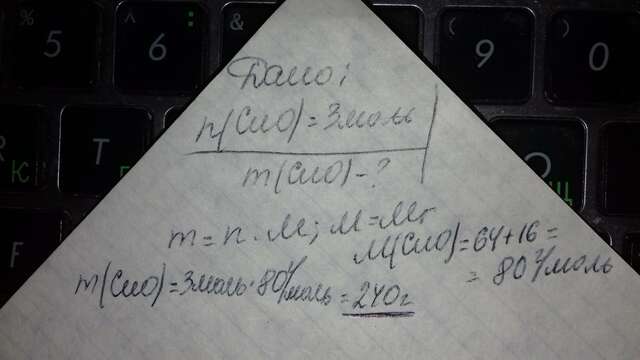 % 5
^ 6
: &
( 9
) 0
К
Т
Щ
F
Дано:
n(CuO) = 3моль
m(CuO) - ?
m = n · M; M = Mr
M(CuO) = 64 + 16 =
= 80 г/моль
m(CuO) = 3моль · 80 г/моль = 240 г